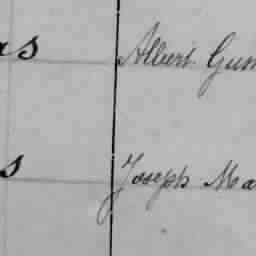 Albert Gun
Joseph Ma